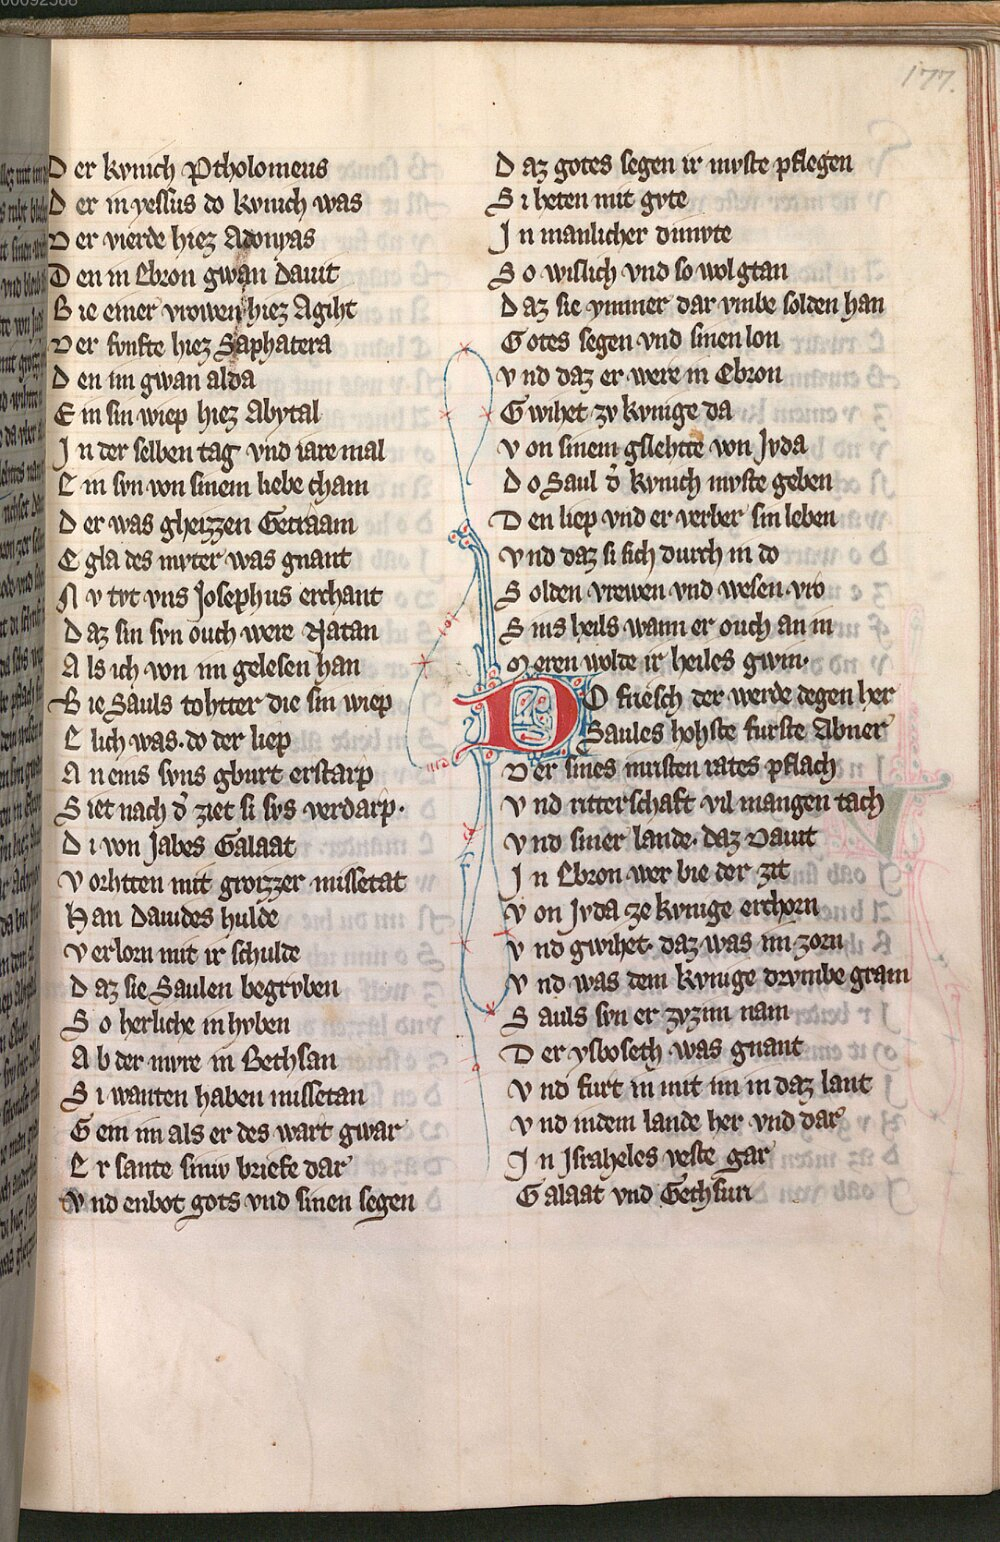 177.
Der kvnich Ptholomeus
Der in yessus do kvnich was
Der vierde hiez Adonyas
Den in Ebron gwan dauit
Bie einer vrowen hiez Agiht
Der fvnfte hiez Saphatera
Den im gwan alda
Ein sin wiep hiez Abytal
In der selben tag vnd iare mal
Ein svn von sinem liebe cham
Der was gheizzen Getraam
Egla des mvter was gnant
Nv tvt vns Josephus erchant
Daz sin svn ouch were Natan
Als ich von im gelesen han
Bie Sauls tohtter die sin wiep
Elich was. do der liep
An eins svns gburt erstarp
Siet nach d̉ ziet si svs verdarp.
Di von Jabes Galaat
Vorhtten mit grozzer missetat
Han dauides hulde
Verlorn mit ir schulde
Daz sie Saulen begrvben
So herliche in hvben
Ab der mvre in Bethsan
Si wanten haben missetan
Gem im als er des wart gwar
Er sante siniv briefe dar
Vnd enbot gots vnd sinen segen
Daz gotes segen ir mvste pflegen
Si heten mit gvte
In manlicher dimvte
So wislich vnd so wol gtan
Daz sie ymmer dar vmbe solden han
Gotes segen vnd sinen lon
Vnd daz er were in Ebron
Gwihet zv kvnige da
Von sinem gslehtte von Jvda
Do Saul d̉ kvnich mvste geben
Den liep vnd er verber sin leben
Vnd daz si sich durch in do
Solden vrewen vnd wesen vro
Sins heils wann er ouch an in
Meren wolde ir heiles gwin.
DO friesch der werde degen her
Saules hohste furste Abner
Der sines meisten rates pflach
Vnd ritterschaft vil mangen tach
Vnd siner lande. daz Dauit
In Ebron wer bie der zit
Von Jvda ze kvnige erchorn
Vnd gwihet. daz was im zorn
Vnd was dem kvnige drvmbe gram
Sauls svn er zvzim nam
Der ysboseth was gnant
Vnd furt in mit im in daz lant
Vnd in dem lande her vnd dar
In Jsraheles veste gar
Galaat vnd Gethsuri